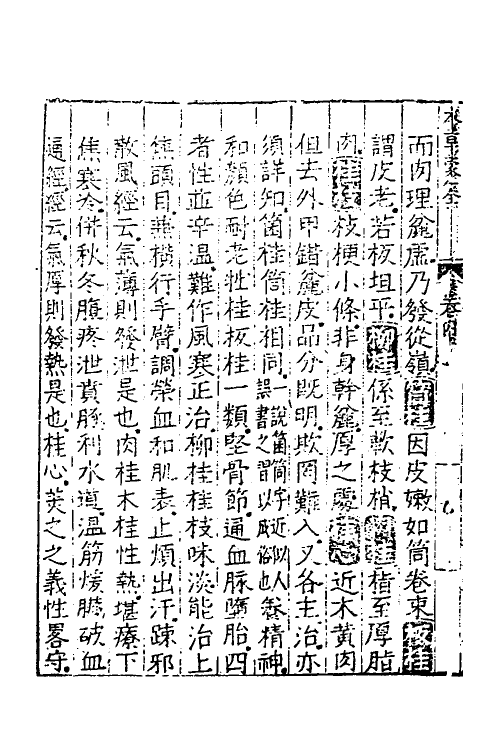 本草蒙筌
卷四
而肉理麄虛乃發從嶺筒桂因皮嫩如筒卷束板桂
謂皮老若板坦平柳桂係至軟枝梢桂指至厚脂
肉桂枝枝梗小條非身幹麄厚之處桂心近木黃肉
但去外甲錯麄皮品分既明欺罔難入又各主治亦
須詳知箇桂筒桂相同一說箇筒字近似人誤書之習以成俗也養精神
和顏色耐老牡桂板桂一類堅骨節通血脉墮胎四
者性並辛溫難作風寒正治柳桂桂枝味淡能治上
焦頭目兼橫行手臂調榮血和肌表止煩出汗踈邪
散風經云氣薄則發泄是也肉桂木桂性熱堪療下
焦寒冷併秋冬腹疼泄賁豚利水道溫筋煖臟破血
通經經云氣厚則發熱是也桂心美之之義性畧守